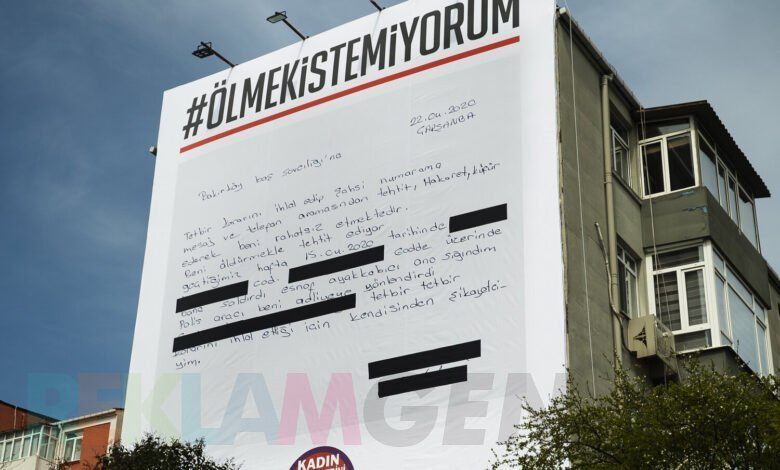 #ÖLMEKİSTEMİYORUM
22.04.2020
ÇARŞANBA
Bakırköy baş savcılığı'na
Tetbir kararını ihlal edip şahsi numarama
mesaj ve telefon aramasından tehtit, Hakaret, küfür
ederek beni rahatsız etmektedir.
Beni öldürmekle tehtit ediyor
geçtiğimiz hafta 15.04.2020 tarihinde
cad. cadde üzerinde
bana saldırdı esnaf ayakkabıcı ona sığındım
Polis aracı beni adliyeye yönlendirdi
tetbir tetbir
kararını ihlal ettiği için kendisinden şikayetçi-
yim.
REKLAMGEN
KADIN